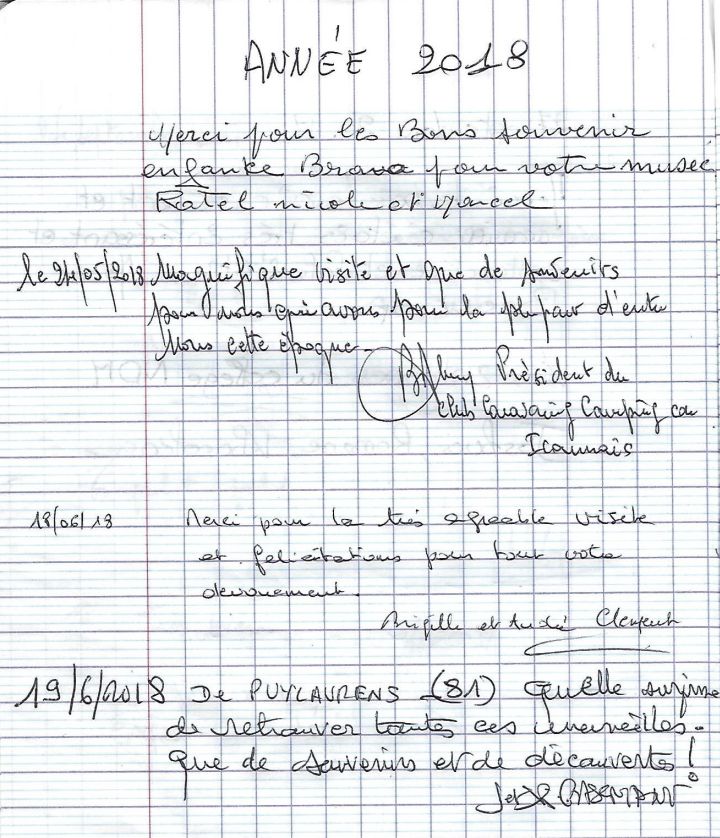 ANNÉE 2018
Merci pour les Bons souvenir
enfanke Bravo pour votre musée
Ratel nicole et Marcel.
le 24/05/2018 Magnifique visite et que de souvenirs
pour nous qui avons pour la plupart d'entre
Nous cette époque.
Président du
Club Caravaning Camping car
Icaunais
18/06/18 Merci pour la très agreable visite
et felicitations pour tout votre
devouement.
et André Clement
19/6/2018 De PUYLAURENS (81) Quelle surprise
de retrouver toutes ces merveilles.
Que de souvenirs et de découvertes !